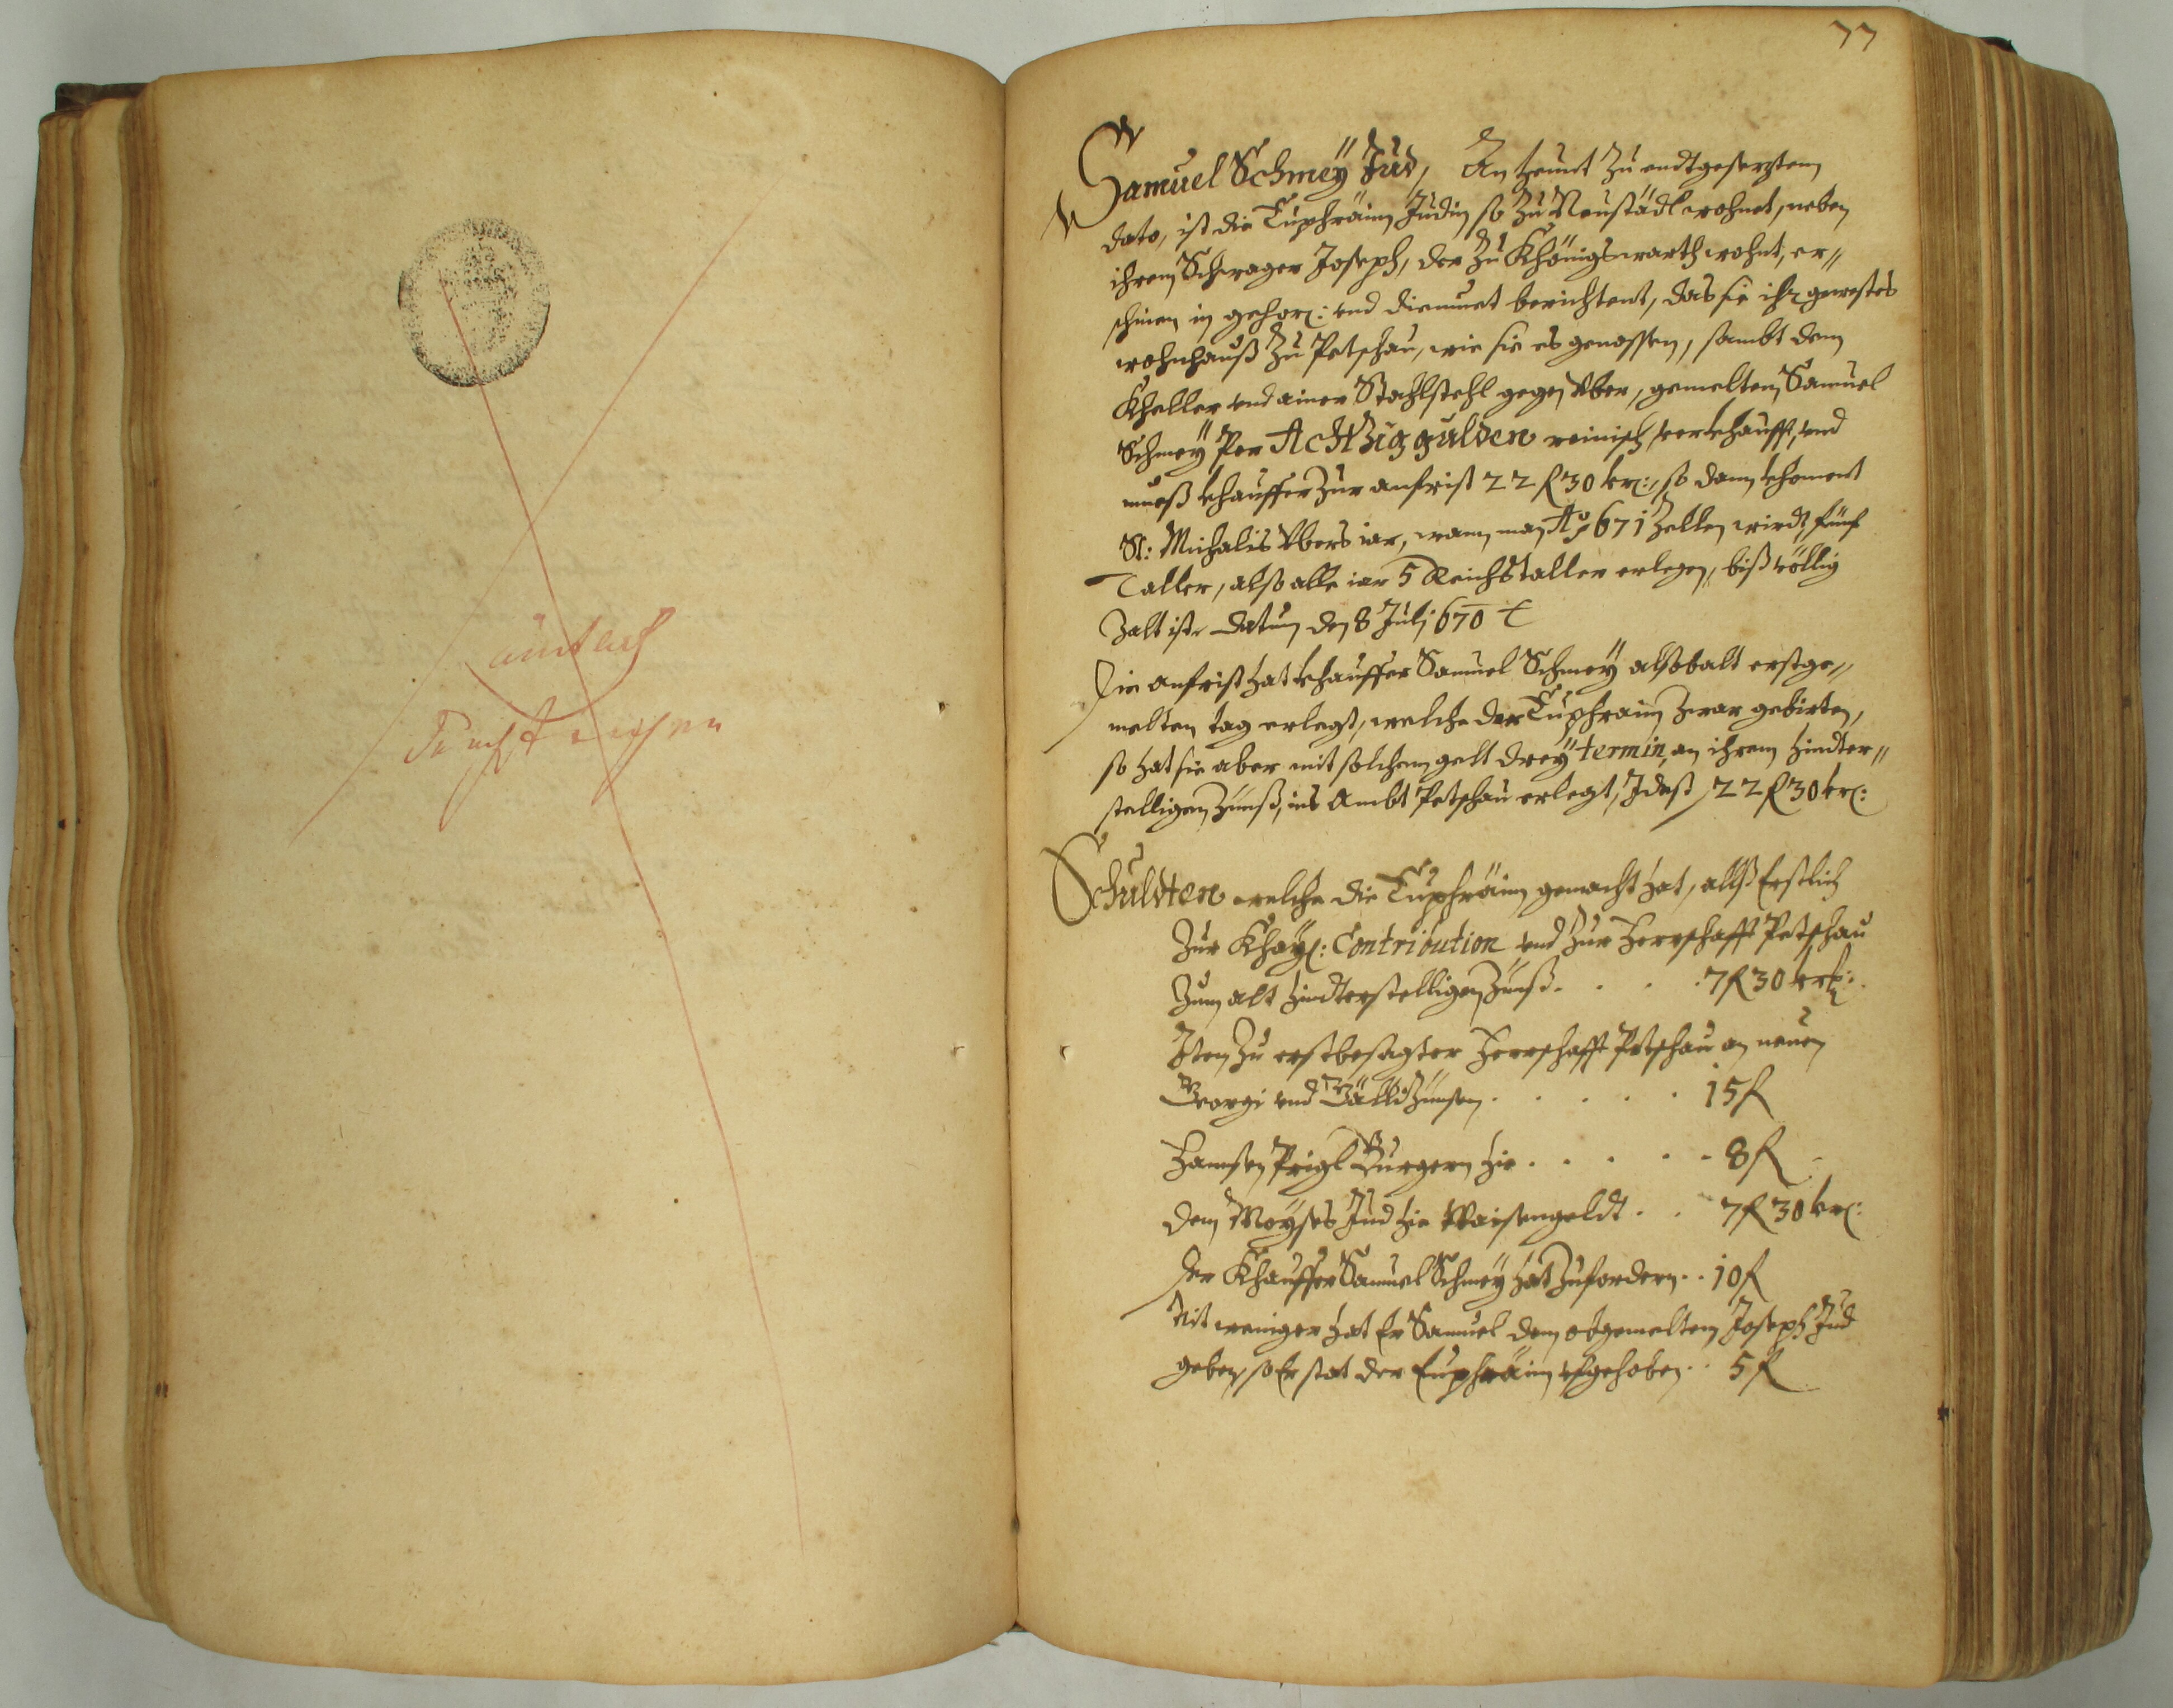 77
Samuel Schmeÿ Jud, An heunt zu endtgeseztem
dato, ist die Euphräim Jüdin so zu Neustädl wohnet, neben
ihrem Schwager Joseph, der zu Khönigswarth wohnt, er„
schinen in gehors: vnd diemuet berichtent, das sie ihr gewestes
wohnhauß zu Petschau, wie sie es genossen, sambt dem
Kheller vnd ainer Stahlstehl gegen vber, gemelten Samuel
Schmeÿ Per Achtzig gulden reinisch verkhaufft, vnd
mueß khauffer zur anfrist 22 f 30 kr:, so dann khoment
St: Michalis vbers iar, wann man Ao 671 zellen wirdt, fünf
Taller, also alle iar 5 Reichstaller erlegen, biß völlig
zalt ist. Datum den 8 Julj 670
Die anfrist hat khauffer Samuel Schmeÿ alsobalt erstge„
melten tag erlegt, welche der Euphraim zwar gebirten,
so hat sie aber mit solchem gelt dreÿ termin, an ihrem hindter„
stelligen Zünß, ins Ambt Petschau erlegt, Id est 22 f 30 kr:
Schuldten welche die Euphräim gemacht hat, allß Erstlich
Zur Khaÿs: Contribution vnd zur Herrschafft Petschau
zum alt hindterstelligen Zünß . . . . 7 f 30 kr:
Item zu erstbesagter Herrschafft Petschau an neuen
Georgi vnd Gälli Zünsen . . . . . 15 f
Hannsen Prigl Burgern hie . . . . . 8 f
dem Moÿses Jud hie Waisengeldt . . 7 f 30 kr:
der Khauffer Samuel Schmeÿ hat zufordern . . 10 f
Nit weniger hat Er Samuel dem obgemelten Joseph Jud
geben, so Er stat der Euphräim vfgehoben . . 5 f